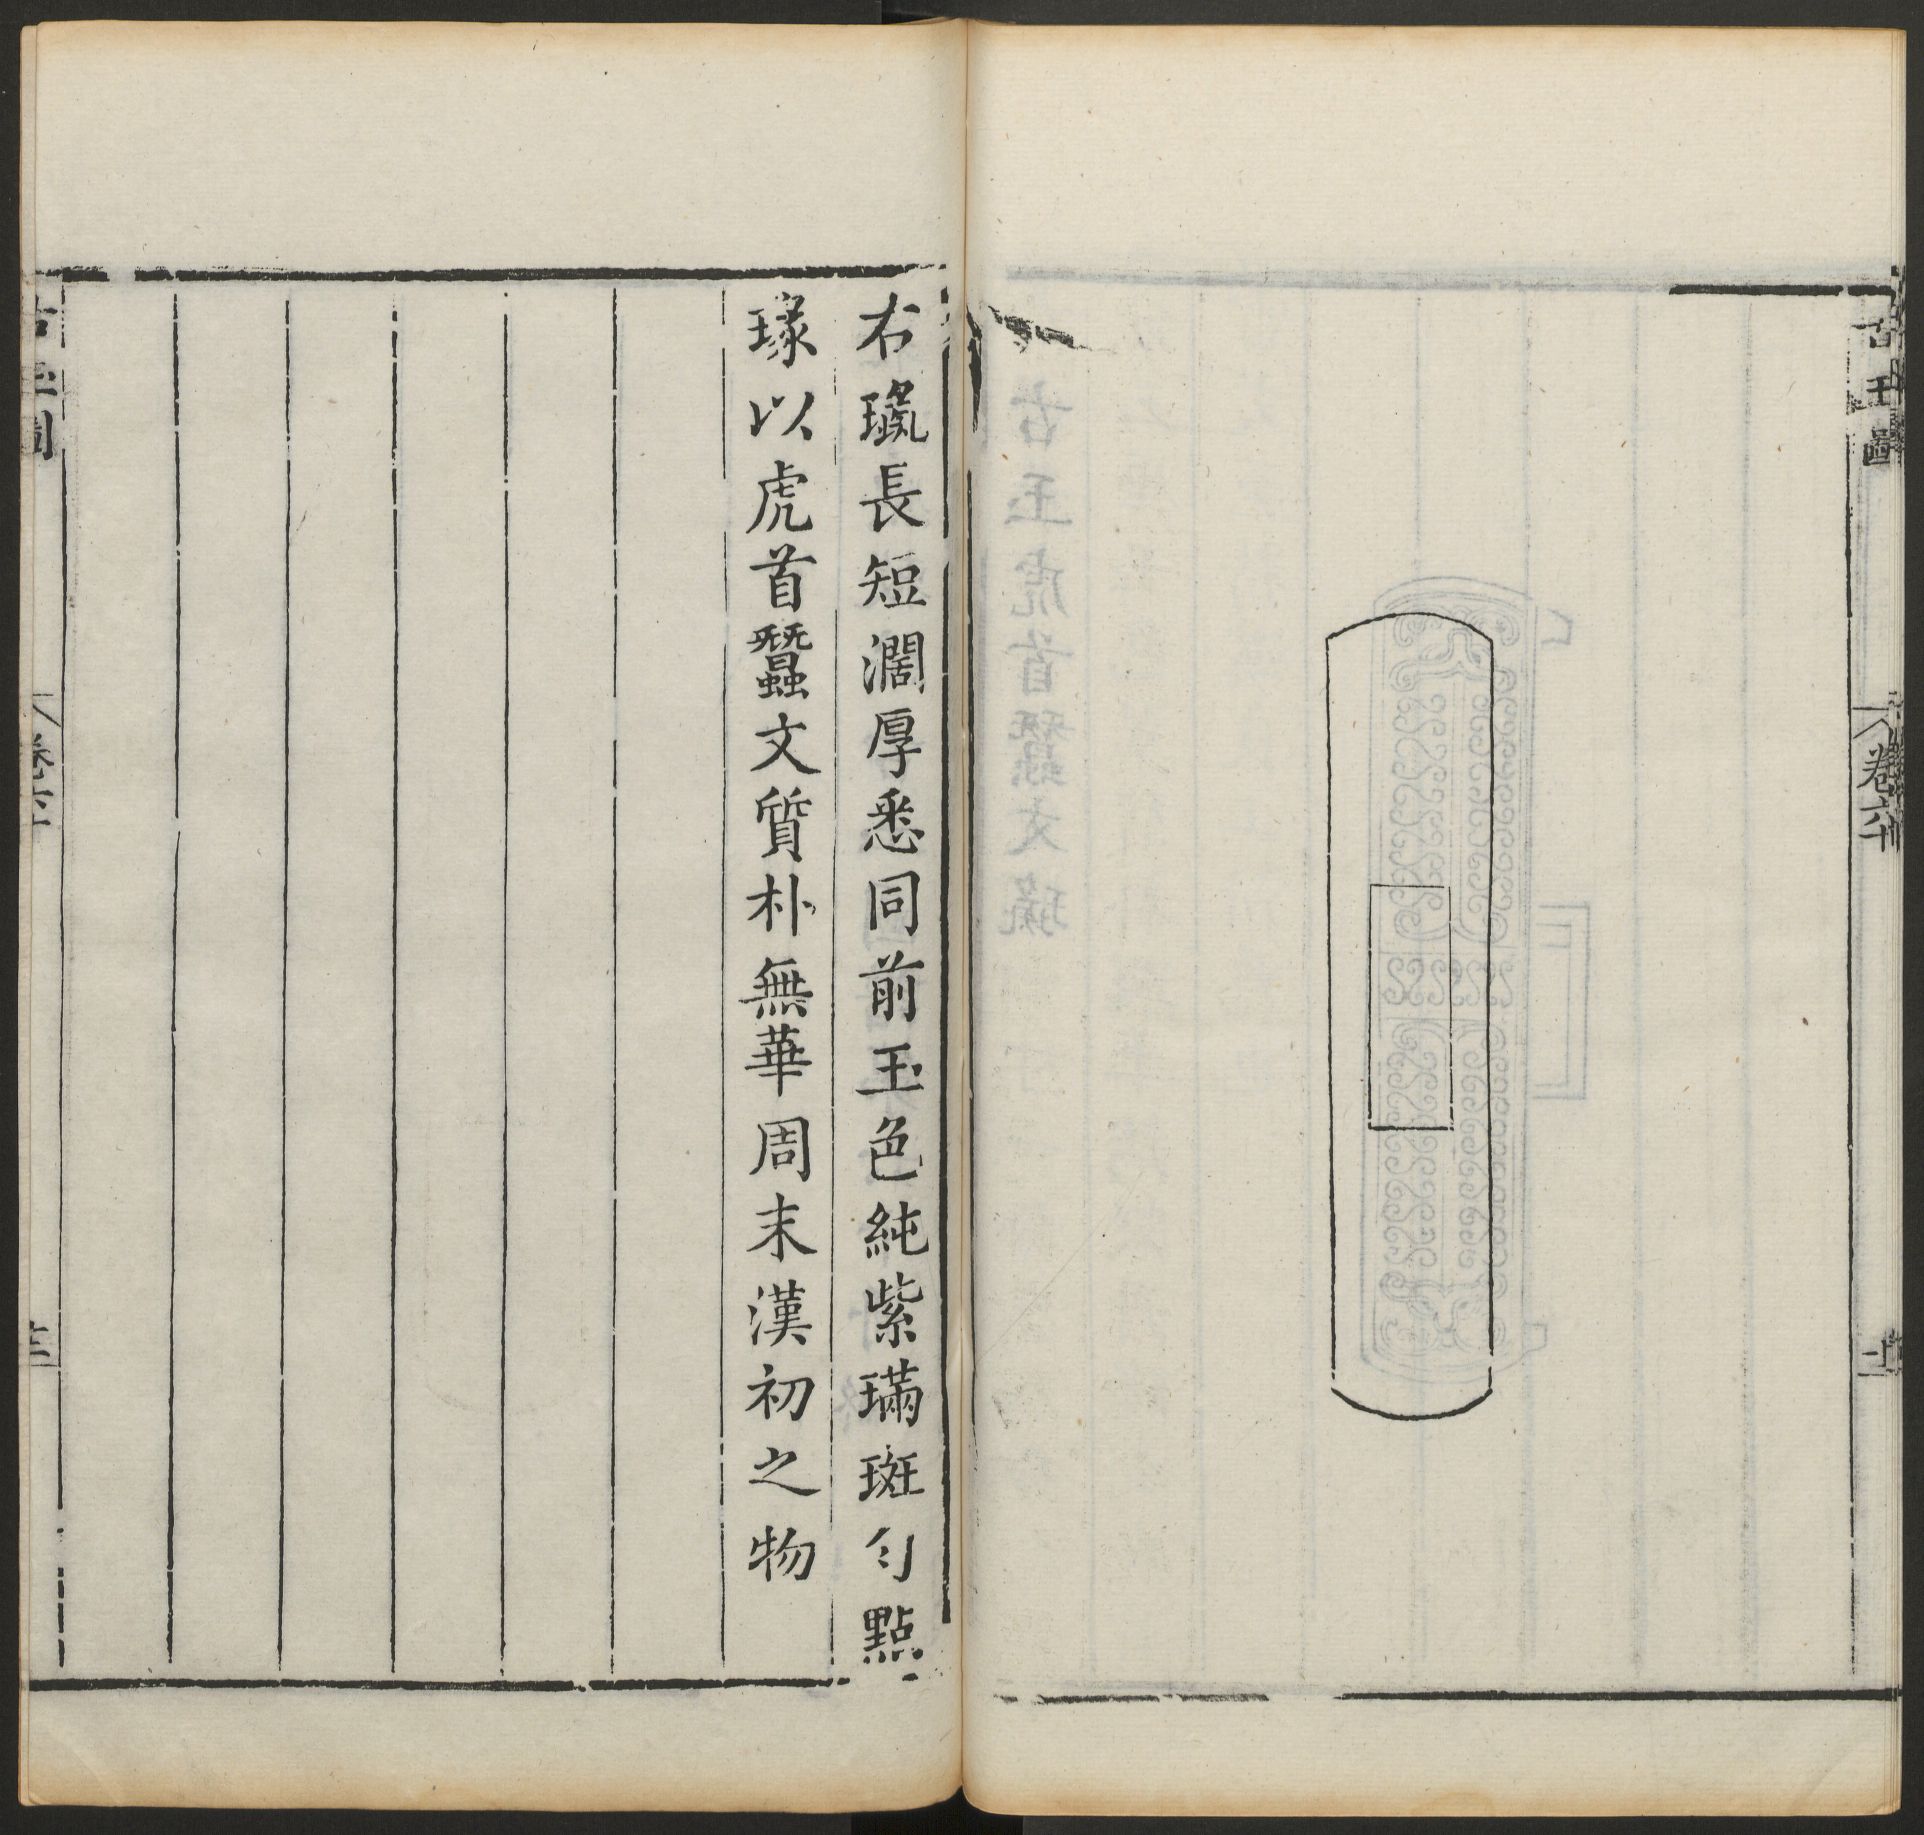 古玉圖
卷六
右璏長短濶厚悉同前玉色純紫璊斑匀點
瑑以虎首蠶文質朴無華周末漢初之物
古玉圖
卷六